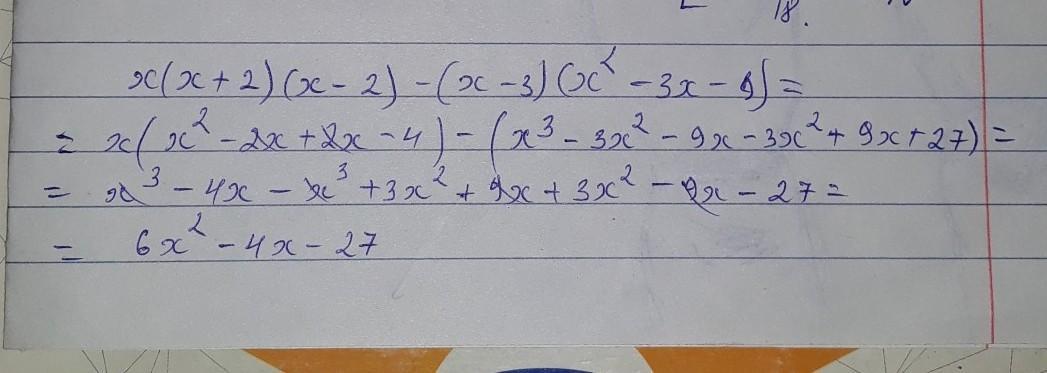 18.
x(x+2)(x-2)-(x-3)(x²-3x-9)=
= x(x²-2x+2x-4)-(x³-3x²-9x-3x²+9x+27)=
= x³-4x-x³+3x²+9x+3x²-9x-27=
= 6x²-4x-27